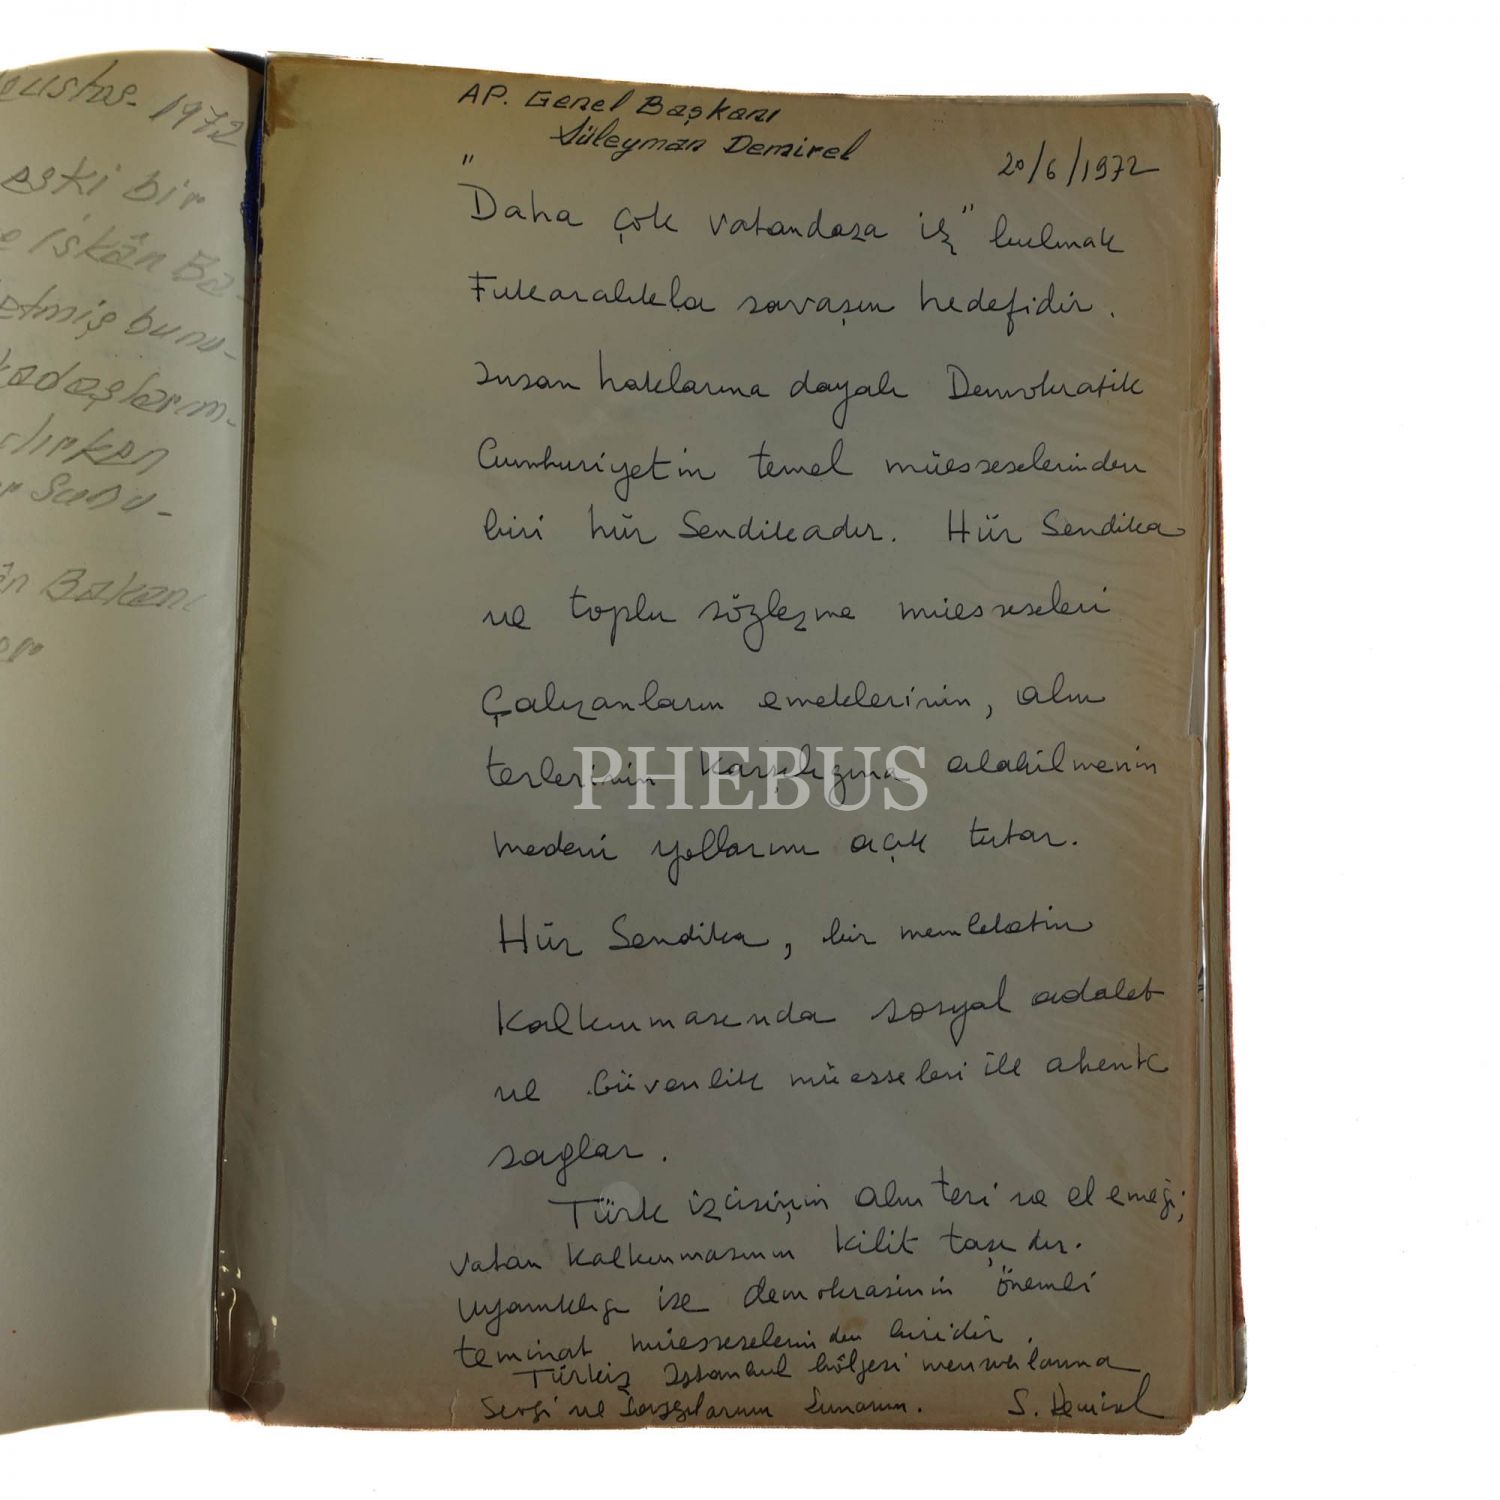 eustos. 1972
eski bir
e İskân Ba-
etmiş bunu-
kadaşlarım-
lırken
r Sunu-
ân Bakanı
AP. Genel Başkanı
Süleyman Demirel
20/6/1972
"Daha çok vatandaşa iş" bulmak
Fukaralıkla savaşın hedefidir.
İnsan haklarına dayalı Demokratik
Cumhuriyetin temel müesseselerinden
biri hür Sendikadır. Hür Sendika
ve toplu sözleşme müesseseleri
Çalışanların emeklerinin, alın
terlerinin karşılığını alabilmenin
medeni yollarını açık tutar.
Hür Sendika, bir memleketin
Kalkınmasında sosyal adalet
ve Güvenlik müesseseleri ile ahenk
sağlar.
Türk işçisinin alın teri ve el emeği;
vatan kalkınmasının kilit taşıdır.
Uyanıklığı ise demokrasinin önemli
teminat müesseselerinden biridir.
Türkiş İstanbul bölgesi mensuplarına
Sevgi ve Saygılarımı Sunarım. S. Demirel
PHEBUS